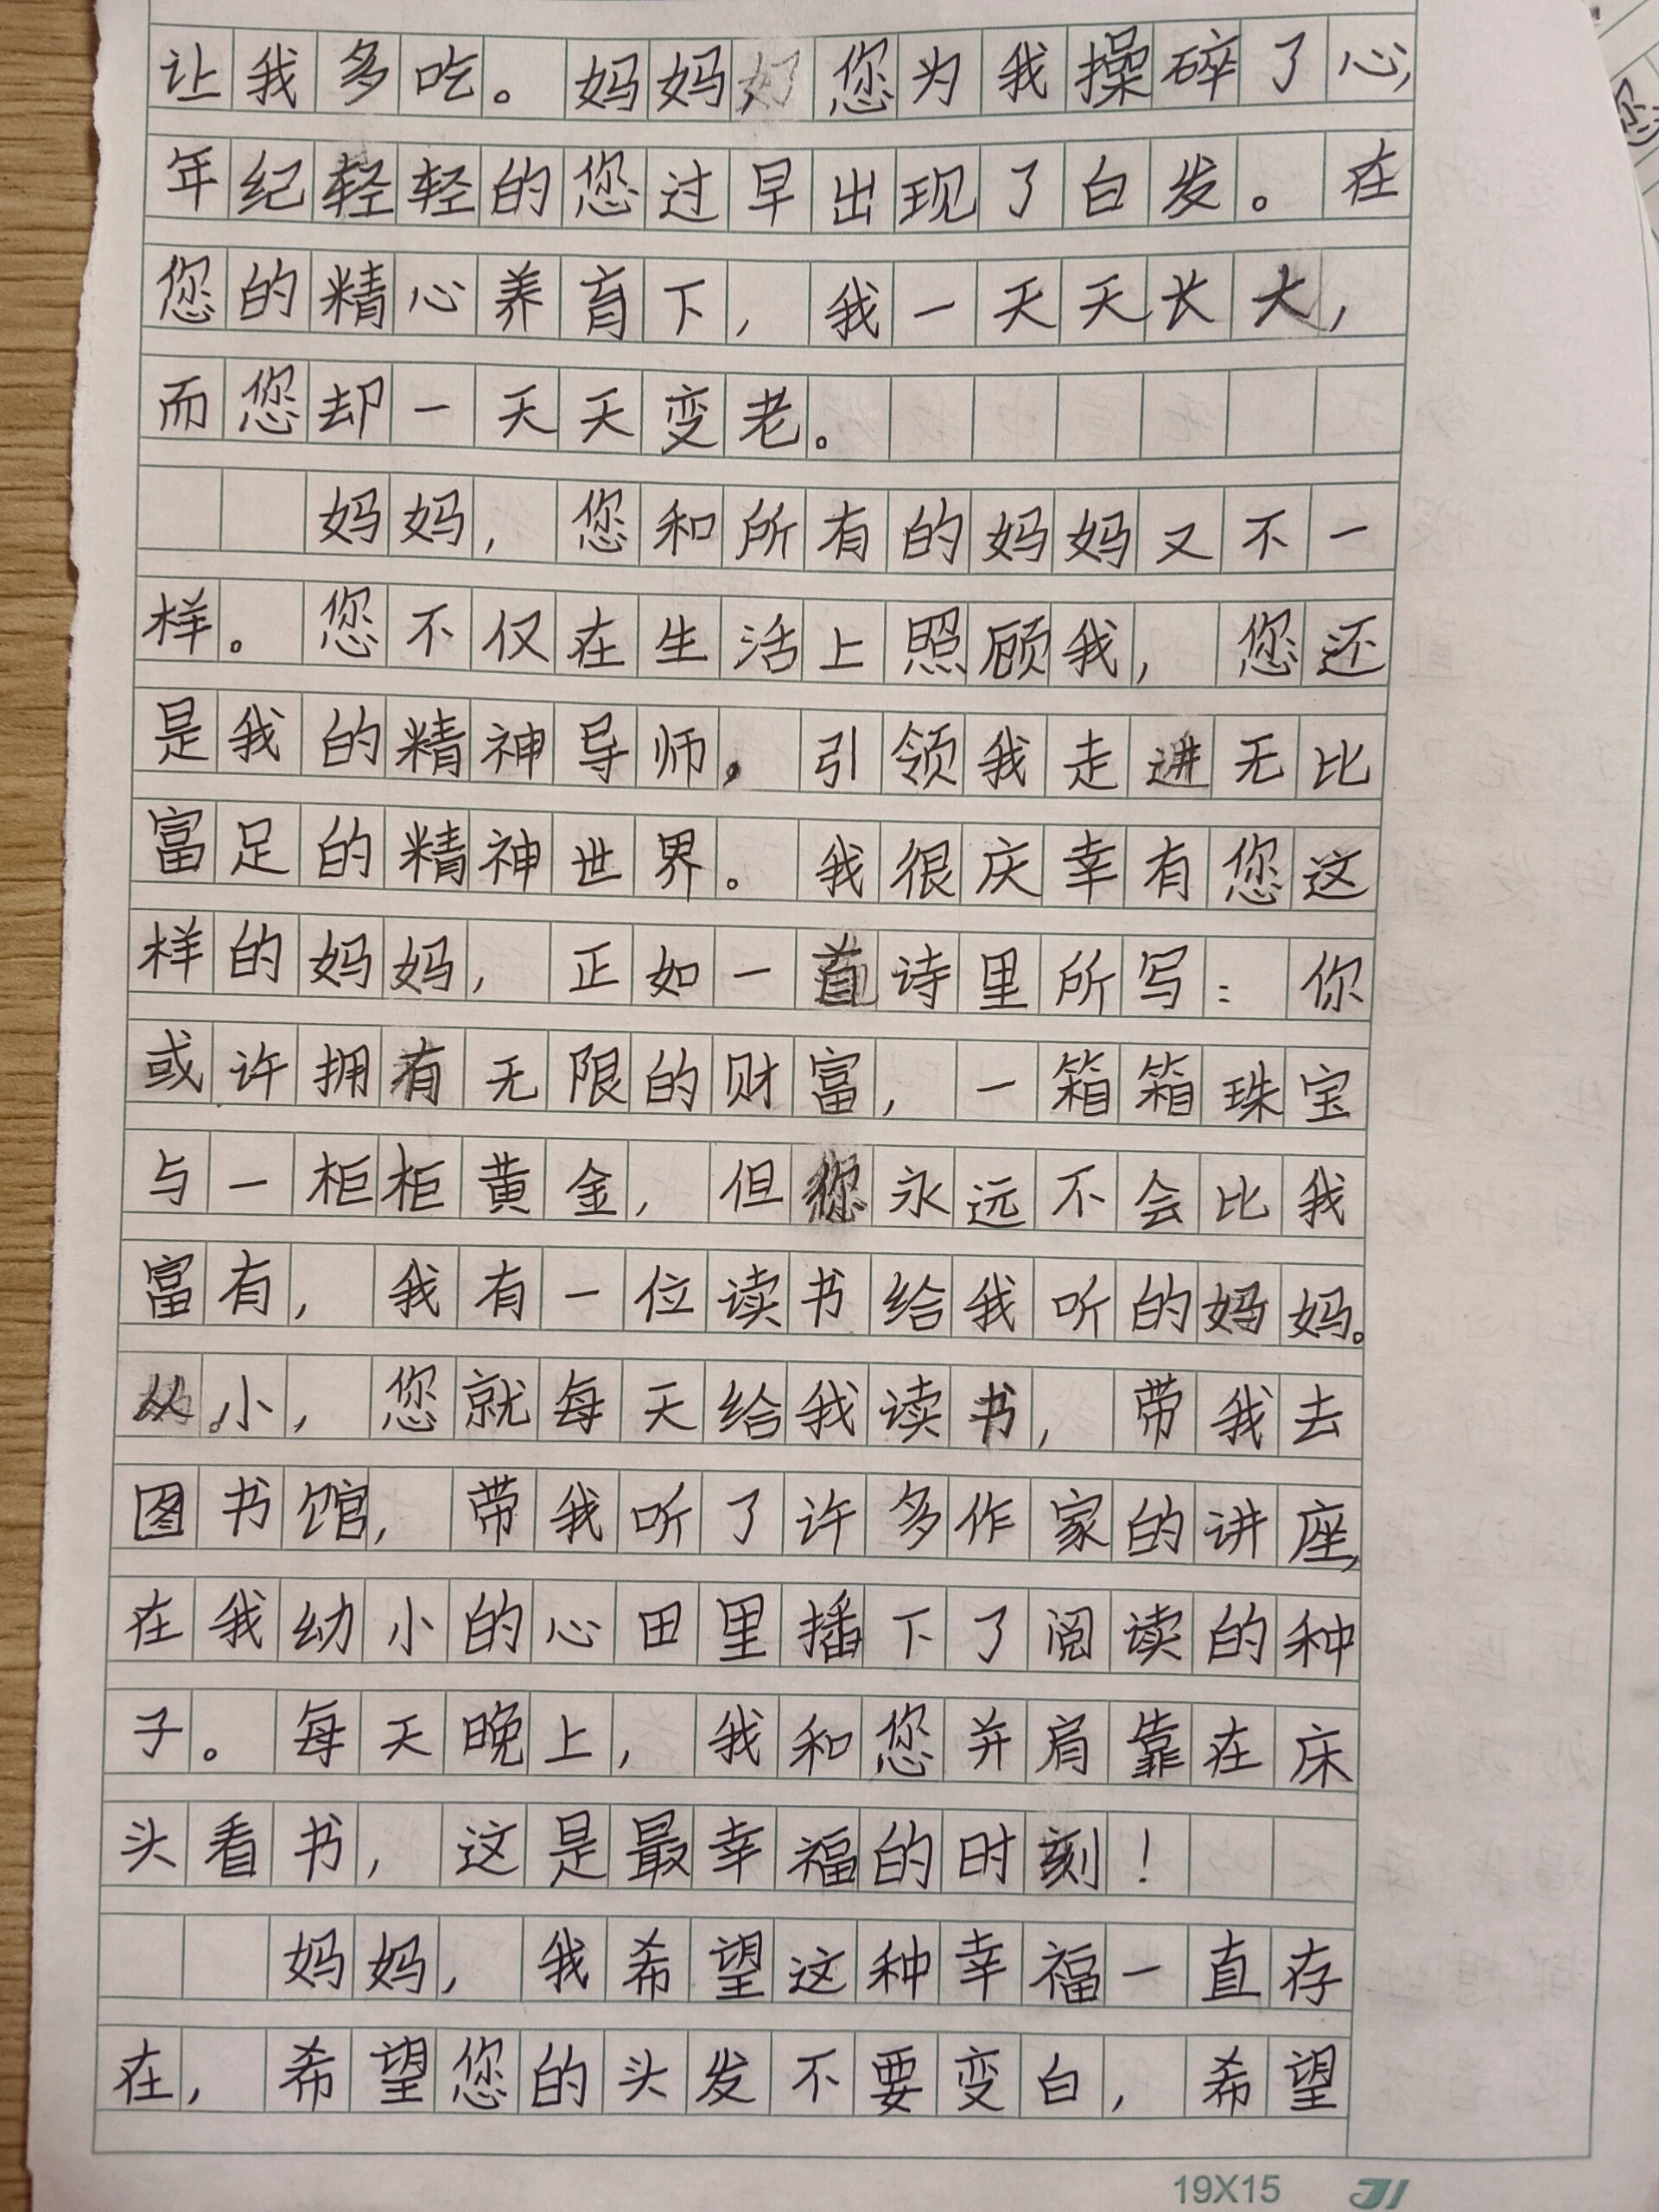 让我多吃。妈妈 您为我操碎了心，
年纪轻轻的您过早出现了白发。在
您的精心养育下，我一天天长大，
而您却一天天变老。
妈妈，您和所有的妈妈又不一
样。您不仅在生活上照顾我，您还
是我的精神导师，引领我走进无比
富足的精神世界。我很庆幸有您这
样的妈妈，正如一首诗里所写：你
或许拥有无限的财富，一箱箱珠宝
与一柜柜黄金，但你永远不会比我
富有，我有一位读书给我听的妈妈。
从小，您就每天给我读书，带我去
图书馆，带我听了许多作家的讲座，
在我幼小的心田里播下了阅读的种
子。每天晚上，我和您并肩靠在床
头看书，这是最幸福的时刻！
妈妈，我希望这种幸福一直存
在，希望您的头发不要变白，希望
19X15